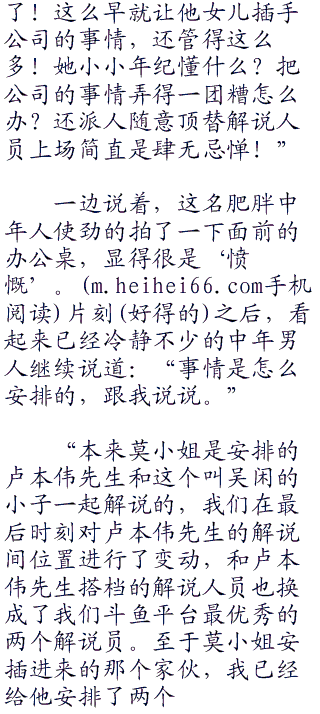 了！这么早就让他女儿插手
公司的事情，还管得这么
多！她小小年纪懂什么？把
公司的事情弄得一团糟怎么
办？还派人随意顶替解说人
员上场简直是肆无忌惮！”
一边说着，这名肥胖中
年人使劲的拍了一下面前的
办公桌，显得很是‘愤
慨’。(m.heihei66.com手机
阅读)片刻(好得的)之后，看
起来已经冷静不少的中年男
人继续说道：“事情是怎么
安排的，跟我说说。”
“本来莫小姐是安排的
卢本伟先生和这个叫吴闲的
小子一起解说的，我们在最
后时刻对卢本伟先生的解说
间位置进行了变动，和卢本
伟先生搭档的解说人员也换
成了我们斗鱼平台最优秀的
两个解说员。至于莫小姐安
插进来的那个家伙，我已经
给他安排了两个